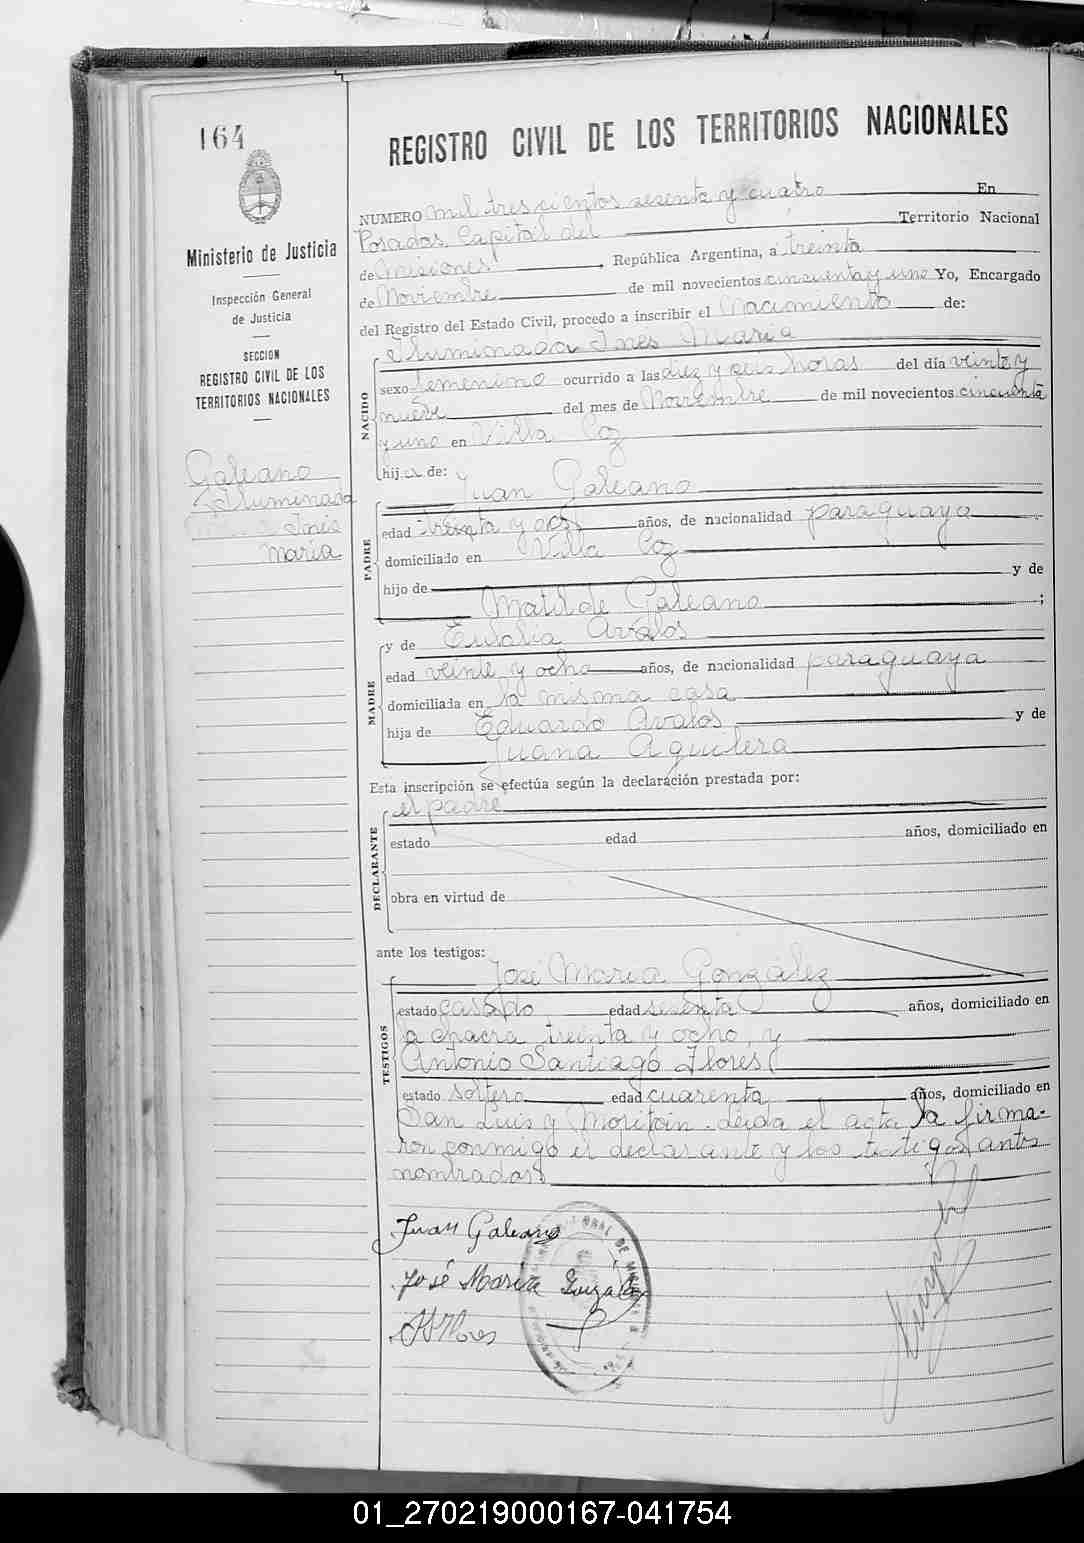 164
Ministerio de Justicia
Inspección General
de Justicia
SECCION
REGISTRO CIVIL DE LOS
TERRITORIOS NACIONALES
Galeano
Iluminada
Inés
María
REGISTRO CIVIL DE LOS TERRITORIOS NACIONALES
NUMERO mil trescientos sesenta y cuatro En
Posadas, Capital del Territorio Nacional
de Misiones, República Argentina, a treinta
de Noviembre de mil novecientos cincuenta y uno Yo, Encargado
del Registro del Estado Civil, procedo a inscribir el Nacimiento de:
NACIDO
Iluminada Ines Maria
sexo femenino ocurrido a las diez y seis horas del día veinte y
nueve del mes de Noviembre de mil novecientos cincuenta
y uno en Villa Coz
hija de:
PADRE
Juan Galeano
edad treinta y años, de nacionalidad paraguaya
domiciliado en Villa Coz
hijo de y de
Matilde Galeano ;
MADRE
y de Eulalia Avalos
edad veinte y ocho años, de nacionalidad paraguaya
domiciliada en la misma casa
hija de Eduardo Avalos y de
Juana Aguilera
Esta inscripción se efectúa según la declaración prestada por:
DECLARANTE
el padre
estado edad años, domiciliado en
obra en virtud de
ante los testigos:
TESTIGOS
José María González
estado casado edad sesenta años, domiciliado en
la chacra treinta y ocho, y
Antonio Santiago Flores
estado soltero edad cuarenta años, domiciliado en
San Luis y leída el acta la firma-
ron conmigo el declarante y los testigos antes
nombrados
Juan Galeano
José María González
Flores
01_270219000167-041754